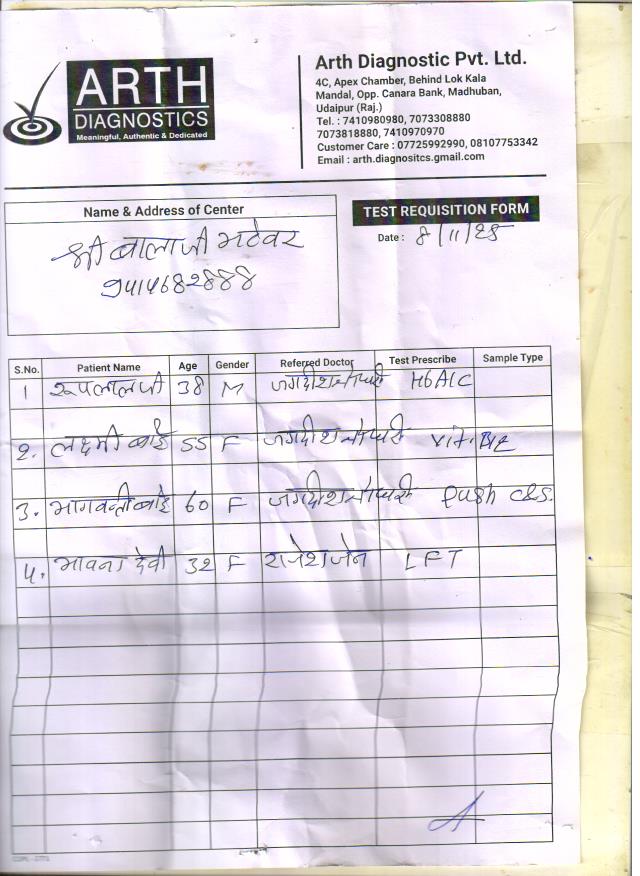 ARTH
DIAGNOSTICS
Meaningful, Authentic & Dedicated
Arth Diagnostic Pvt. Ltd.
4C, Apex Chamber, Behind Lok Kala
Mandal, Opp. Canara Bank, Madhuban,
Udaipur (Raj.)
Tel. : 7410980980, 7073308880
7073818880, 7410970970
Customer Care : 07725992990, 08107753342
Email : arth.diagnositcs.gmail.com
Name & Address of Center
श्री बालाजी भटेवर
9414682888
TEST REQUISITION FORM
Date : 8/11/25
S.No. Patient Name Age Gender Referred Doctor Test Prescribe Sample Type
1 रूपलालजी 38 M जगदीश HbA1C
2. लक्ष्मी बाई 55 F जगदीश Vit. B12
3. भागवन्ती बाई 60 F जगदीश c&s.
4. भावना देवी 32 F राजेश जैन LFT